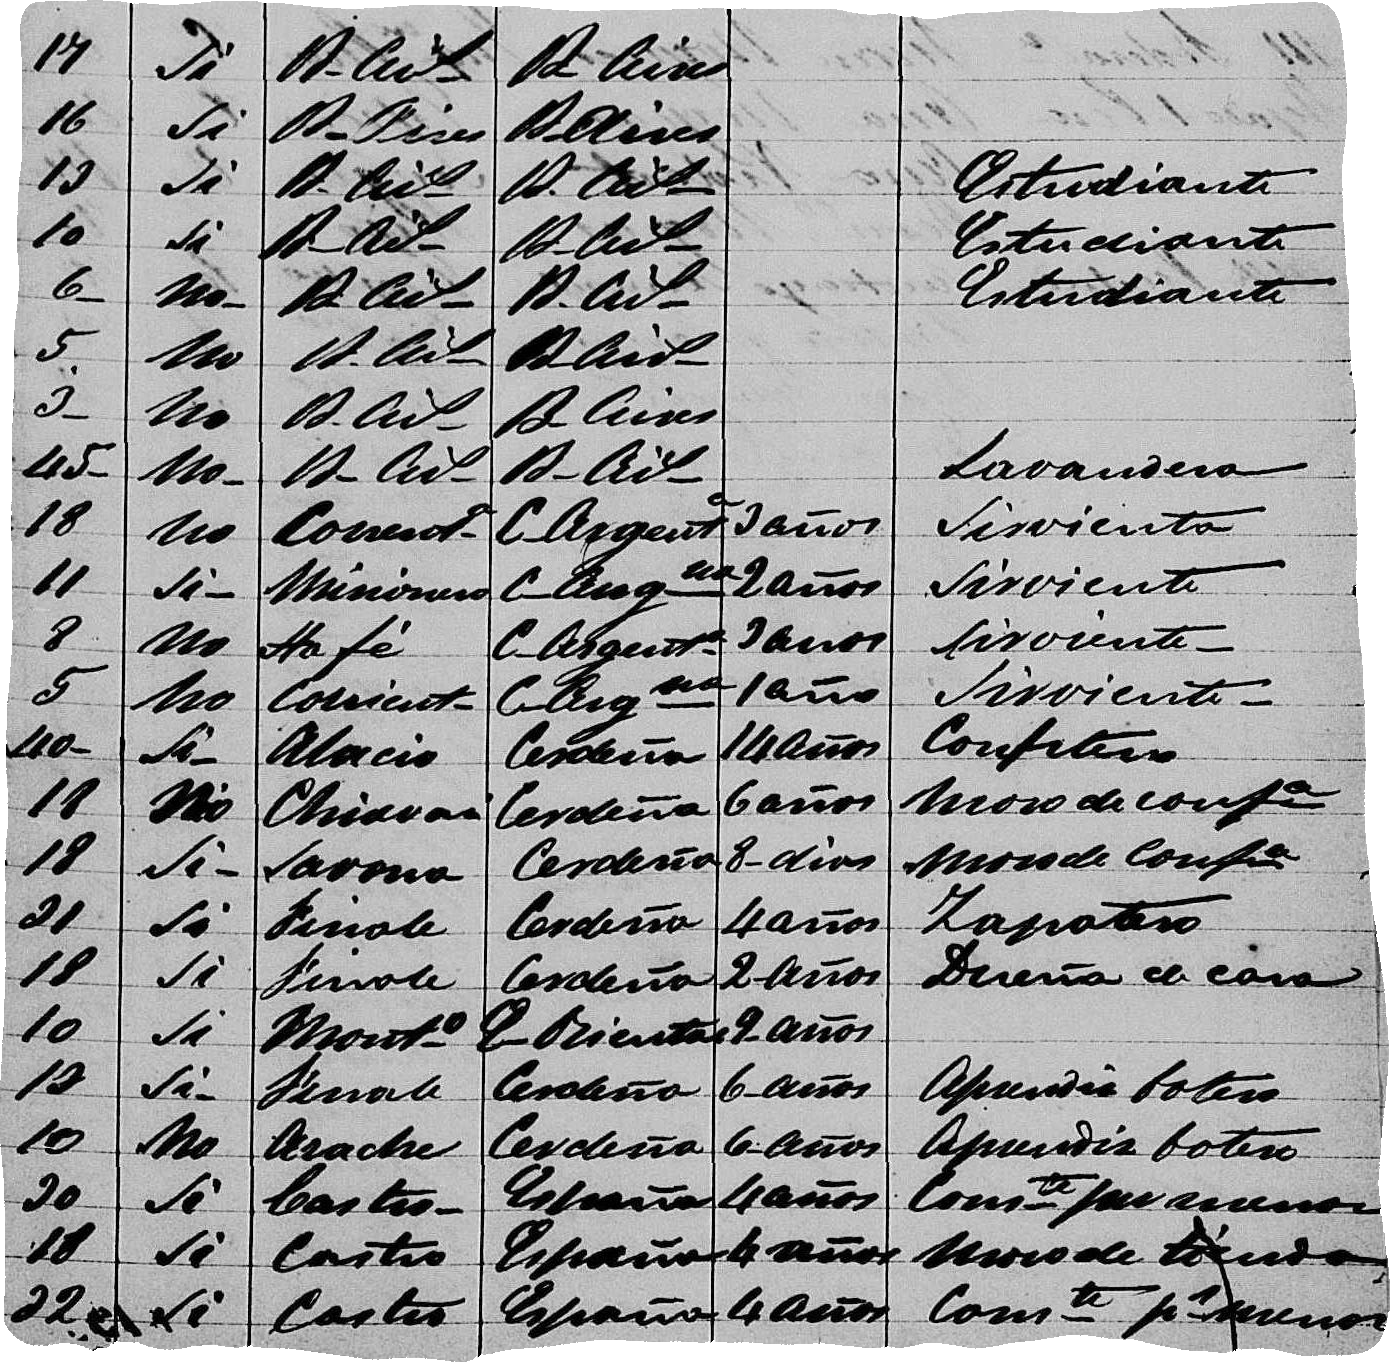 17 Si B- Ais- B- Aires
16 Si B- Aires B- Aires
13 Si B- Ais- B- Ais- Estudiante
10 Si B- Ais- B- Ais- Estudiante
6- No- B- Ais- B- Ais- Estudiante
5 No B- Ais- B- Ais-
3- No B- Ais- B Aires
45- No- B- Ais- B- Ais- Lavandera
18 No Corrent- C- Argentª 3 años Sirvienta
11 Si- Misionero C- Argna 2 años Sirviente
8 No Sta fé C- Argentª 3 años Sirviente-
5 No Corrient- C- Argna 1 año Sirviente-
40- Si- Alacio Cerdeña 14 años Confitero
18 No Chiavari Cerdeña 6 años Moso de confª
18 Si- Savona Cerdeña 8- dias Moso de Confª
21 Si Finale Cerdeña 4 años Zapatero
18 Si Finale Cerdeña 2- años Dueña de casa
10 Si Montº E- Oriental 2- años
12 Si- Finale Cerdeña 6- años Aprendiz botero
10 No Arache Cerdeña 6- años Aprendiz botero
20 Si Castro- España 4 años Comte por menor
18 Si Castro España 4 años Moso de tienda
22 Si Castro España 4 años Comte pr menor